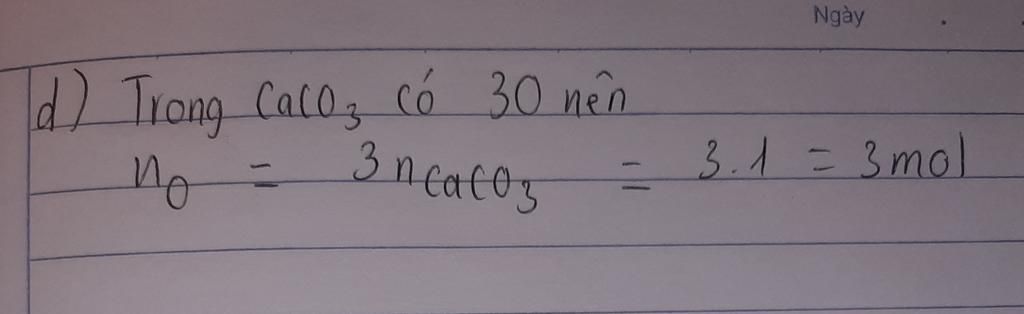 Ngày
d) Trong CaCO₃ có 3O nên
n₀ = 3n CaCO₃ = 3.1 = 3mol